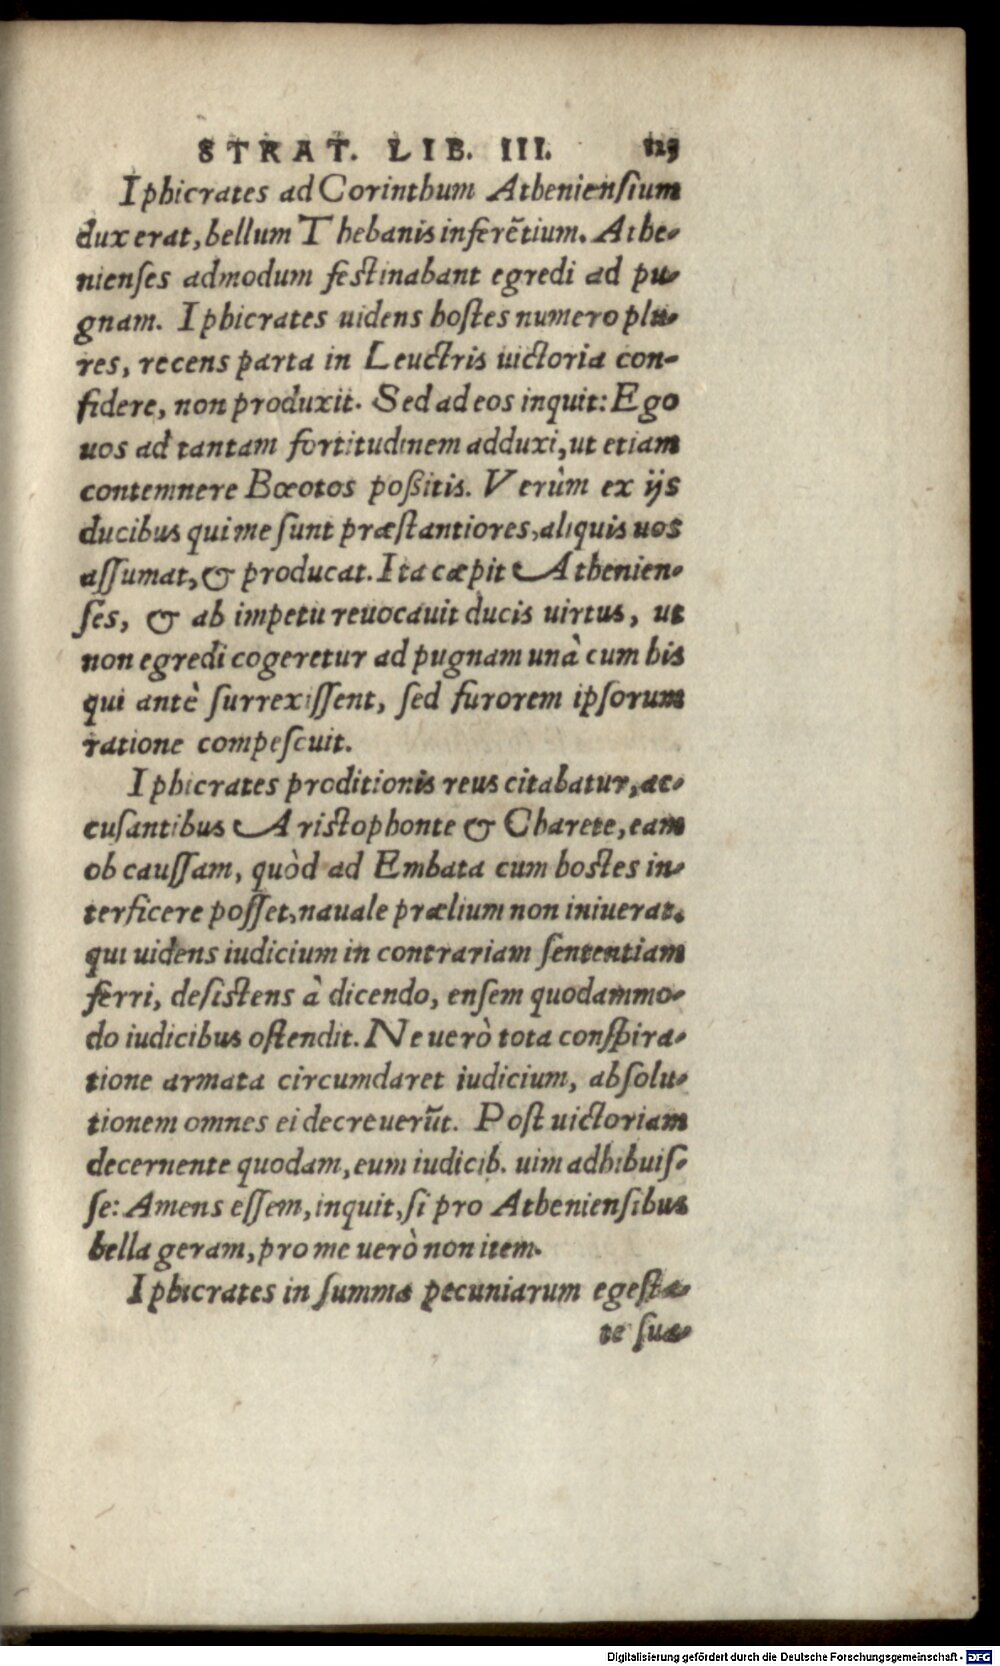 STRAT. LIB. III. 125
Iphicrates ad Corinthum Atheniensium
dux erat, bellum Thebanis inferẽtium. Athe-
nienses admodum festinabant egredi ad pu-
gnam. Iphicrates uidens hostes numero plu-
res, recens parta in Leuctris uictoria con-
fidere, non produxit. Sed ad eos inquit: Ego
uos ad tantam fortitudinem adduxi, ut etiam
contemnere Bœotos poßitis. Verùm ex ijs
ducibus qui me sunt præstantiores, aliquis uos
assumat, & producat. Ita cæpit Athenien-
ses, & ab impetu reuocauit ducis uirtus, ut
non egredi cogeretur ad pugnam unà cum his
qui antè surrexissent, sed furorem ipsorum
ratione compescuit.
Iphicrates proditionis reus citabatur, ac-
cusantibus Aristophonte & Charete, eam
ob caussam, quòd ad Embata cum hostes in-
terficere posset, nauale prælium non iniuerat.
qui uidens iudicium in contrariam sententiam
ferri, desistens à dicendo, ensem quodammo-
do iudicibus ostendit. Ne uerò tota conspira-
tione armata circumdaret iudicium, absolu-
tionem omnes ei decreuerũt. Post uictoriam
decernente quodam, eum iudicib. uim adhibuis-
se: Amens essem, inquit, si pro Atheniensibus
bella geram, pro me uerò non item.
Iphicrates in summa pecuniarum egesta-
te sua-
Digitalisierung gefördert durch die Deutsche Forschungsgemeinschaft - DFG